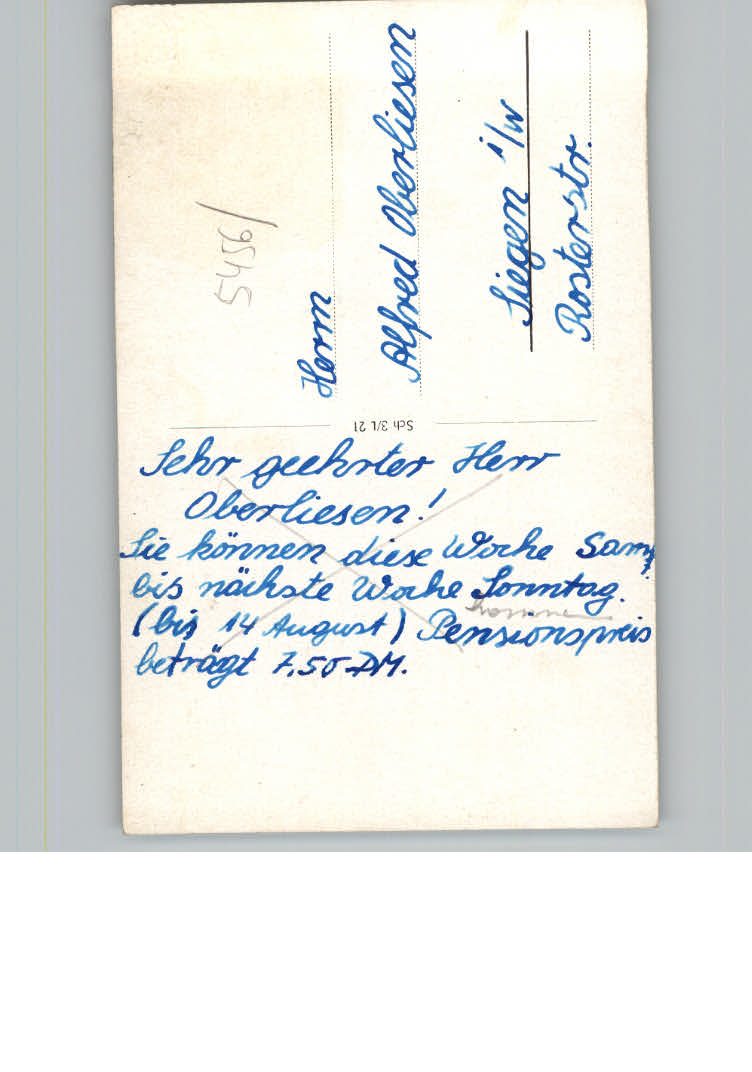 Sehr geehrter Herr
Oberliesen!
Sie können diese Woche Samst.
bis nächste Woche Sonntag.
kommen
(bis 14 August) Pensionspreis
beträgt 7,50 DM.
Sch 3/1 21
Herrn
Alfred Oberliesen
Siegen i/W
Rosterstr.
5456/